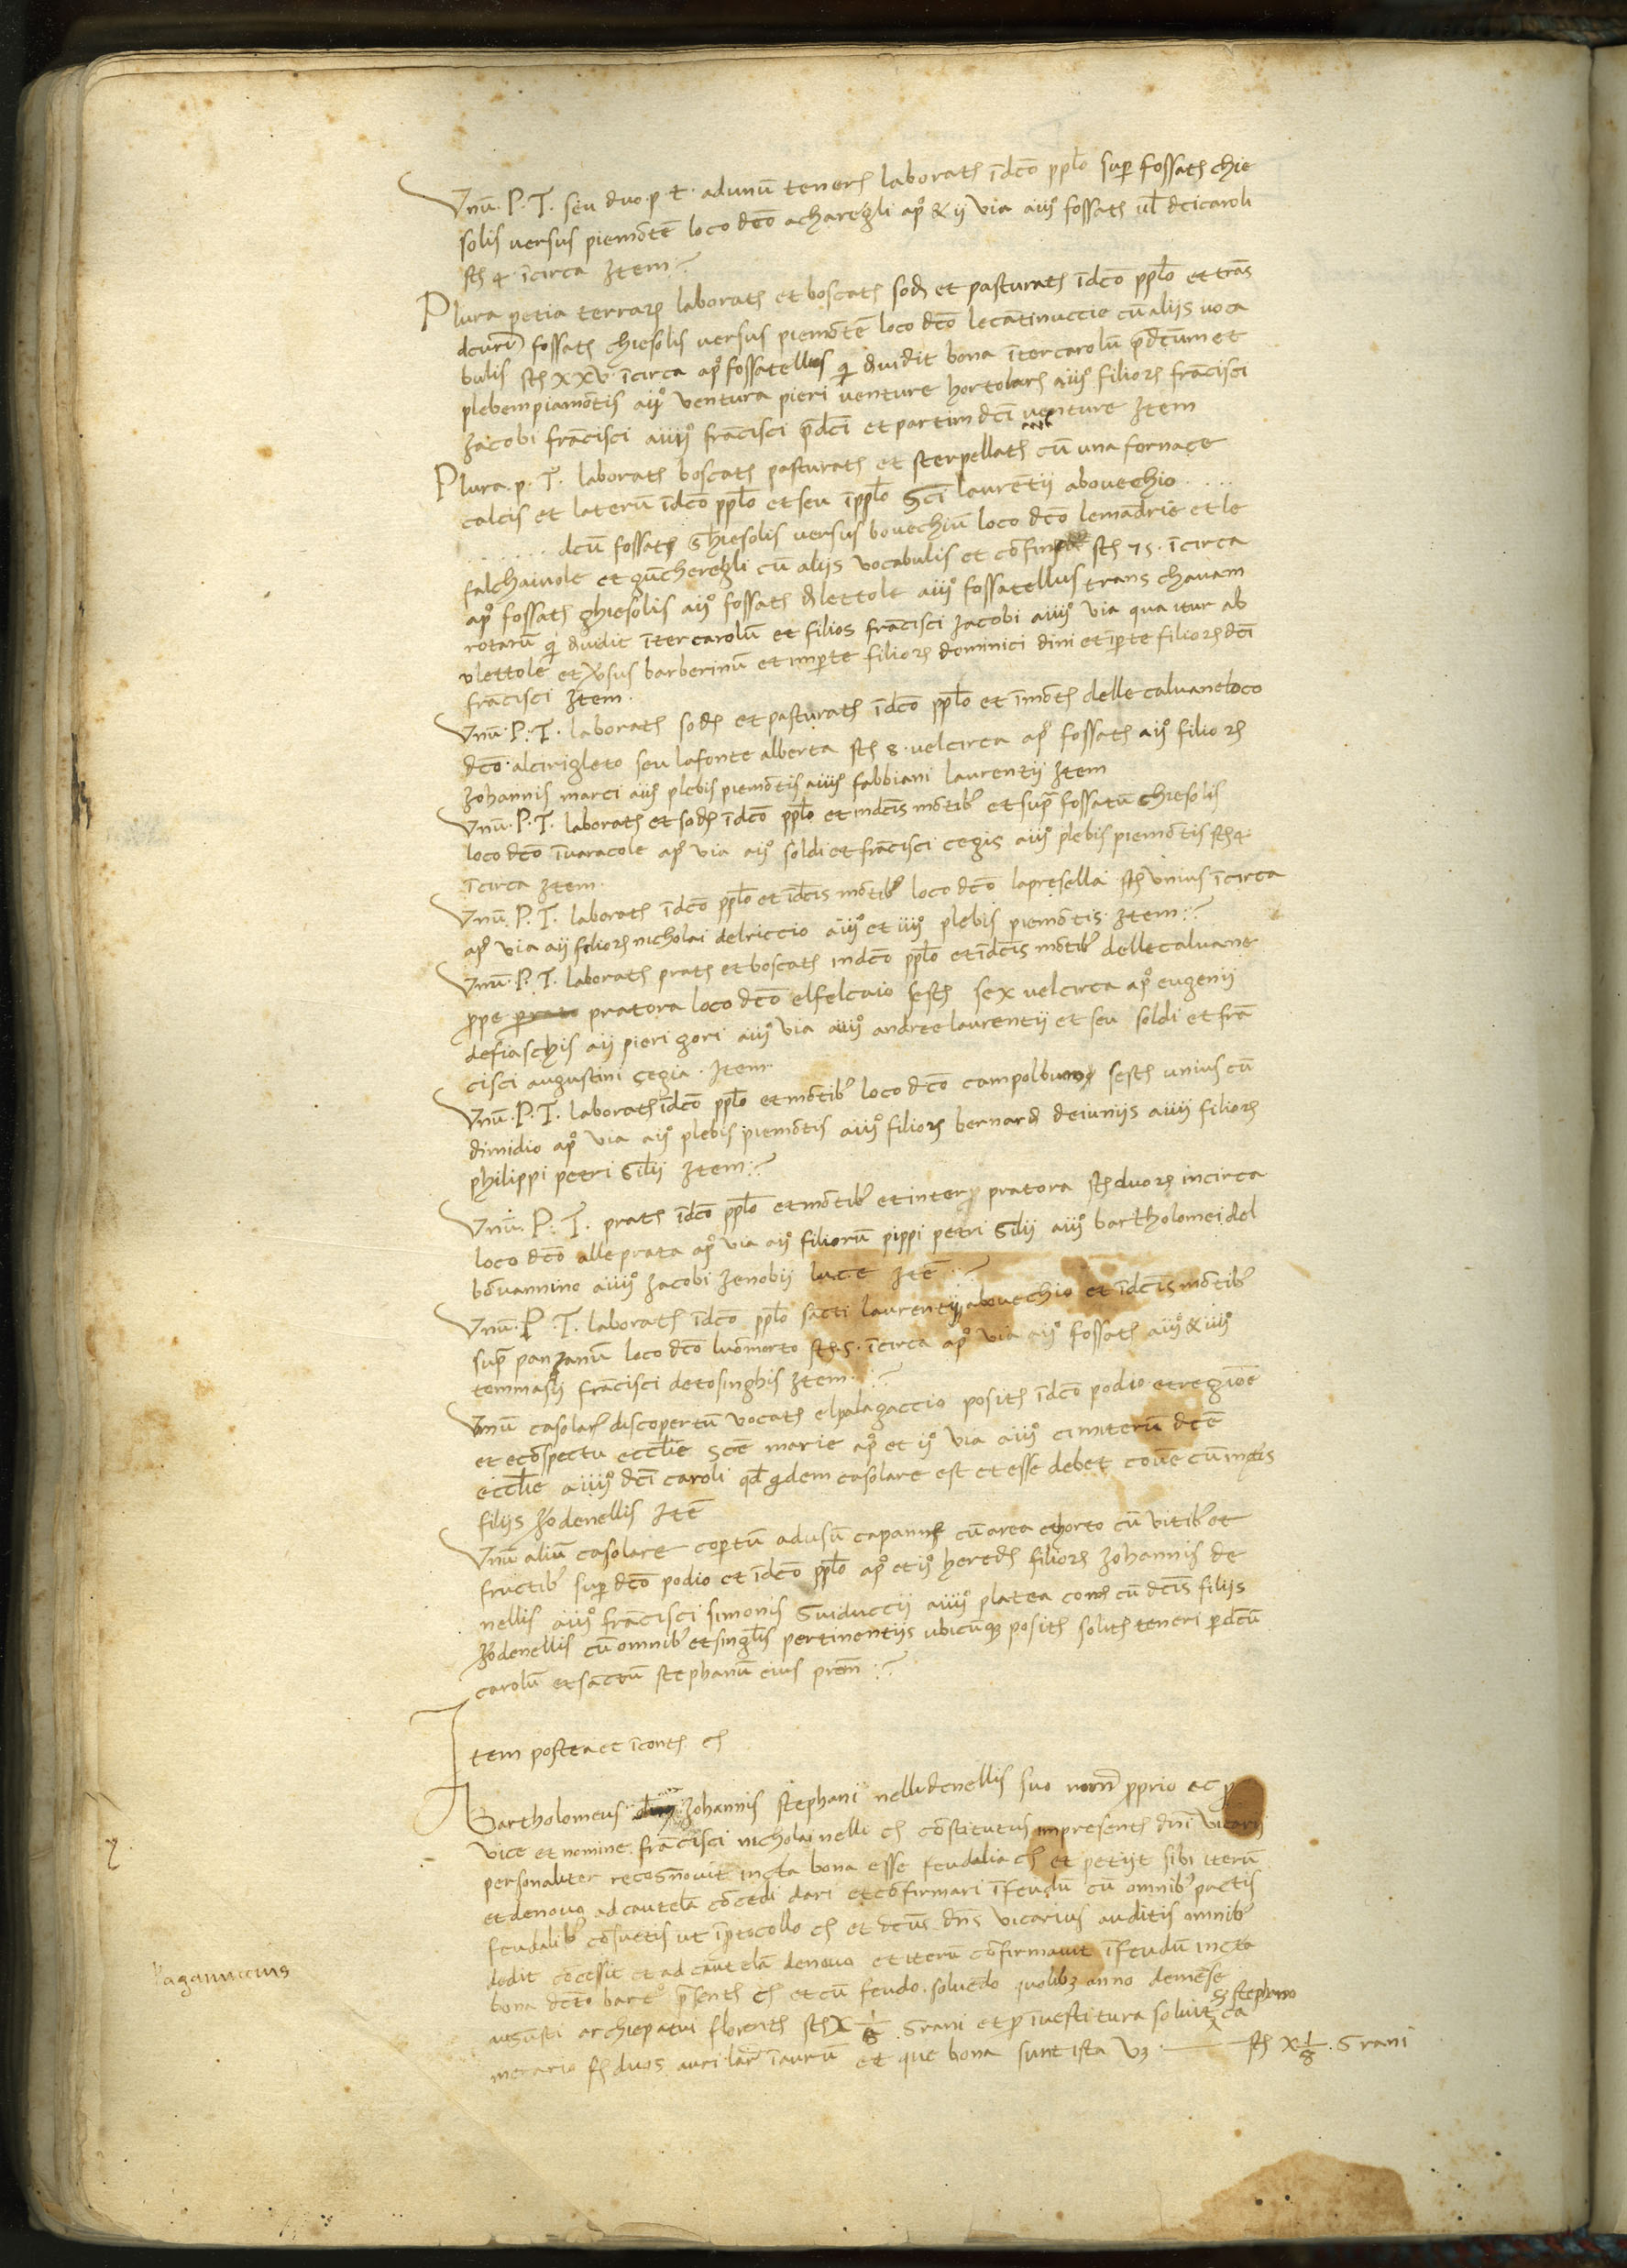 Unũ. P. T. seu duo. p. t. adunũ teneñ laborat; ĩdcõ pplõ sup fossat; chie
solis versus piemõte loco dcõ achareglí apᵒ & ij via aiijᵒ fossat; ul dci caroli
st; 4 ĩcirca Item
Plura petia terraꝝ laborat; et boscat; sod; et pasturat; ĩdcõ pplõ et trãs
dcũ fossat; chiesolis versus piemõte loco dcõ lecãtinuccie cũ aliis voca
bulis st; XXV ĩcirca apᵒ fossatellus q̃ diuidit bona ĩter carolũ p̃dcũm et
plebem piamõtis aijᵒ ventura pieri venture hortolañ aiijᵒ filioꝝ frãcisci
Jacobi frãcisci aiiijᵒ frãcisci p̃dcĩ et partim dcĩ venture Item
Plura. p. T. laborat; boscat; pasturat; et sterpellat; cũ una fornace
calcis et laterũ ĩdcõ pplõ et seu ĩpplõ Scĩ laurẽtij abouechio . . . .
. . . . . . dcũ fossat; ghiesolis versus bouechiũ loco dcõ lemãdrie et le
falchaiuole et gũcheregli cũ aliis vocabulis et cõfin st; 75. ĩcirca
apᵒ fossat; ghiesolis aijᵒ fossat; dlettole aiijᵒ fossatellus trans chauam
rotarũ q̃ diuidit ĩter carolũ et filios frãcisci Jacobi aiiijᵒ via qua itur ab
vlettole et v̉sus barberinũ et inperte filioꝝ dominici dini et ĩperte filioꝝ dcĩ
frãcisci Item.
Unũ. P. T. laborat; sod; et pasturat; ĩdcõ pplõ et ĩmõt; delle caluane loco
dcõ alcirigleto seu lafonte alberta st; 8. vel circa apᵒ fossat; aijᵒ filioꝝ
Johannis marci aiij plebis piemõtis aiiij fabbiani laurentij Item
Unũ. P. T. laborat; et sod; ĩdcõ pplõ et indcĩs mõtib; et supᵃ fossatũ chiesolis
loco dcõ ĩuaracole apᵒ via aijᵒ soldi et frãcisci cegis aiijᵒ plebis piemõtis st; 4
ĩcirca Item.
Unũ. P. T. laborat; ĩdcõ pplõ et ĩdcĩs mõtib; loco dcõ lapresella st; Unius ĩcirca
apᵒ via aij filioꝝ nicholai delriccio aiijᵒ et iiijᵒ plebis piemõtis. Item
Unũ. P. T. laborat; prat; et boscat; indcõ pplõ et ĩdcĩs mõtib; delle caluane
ꝓpe pratora loco dcõ elfelcaio sest; sex vel circa apᵒ eugenij
defiaschis aij pieri gori aiijᵒ via aiiijᵒ andree laurentij et seu soldi et frã
cisci augustini cegia. Item
Unũ. P. T. laborat; ĩdcõ pplõ et mõtib; loco dcõ campolbuono sest; unius cũ
dimidio apᵒ via aijᵒ plebis piemõtis aiijᵒ filioꝝ bernard; deiuniis aiiij filioꝝ
philippi petri Silij Item
Unũ. P. T. prat; ĩdcõ pplõ et mõtib; et inter pratora st; duoꝝ incirca
loco dcõ alle prata apᵒ via aijᵒ filiorũ pippi petri Silij aiijᵒ bartholomei del
bõuannino aiiijᵒ Jacobi Zenobij luce Itẽ
Unũ. P. T. laborat; ĩdcõ pplõ sãcti laurentij abouechio et ĩdcĩs mõtib;
supᵃ panzanũ loco dcõ luomorto st; 5. ĩcirca apᵒ via aijᵒ fossat; aiijᵒ & iiijᵒ
tommasij frãcisci detosinghis Item
Unũ casolar discopertũ vocat; elpalagaccio posit; ĩdcõ podio et regiõe
et ecõspectu eccl̃ie Scẽ marie apᵒ et ijᵒ via aiijᵒ cimiterũ dcẽ
eccl̃ie aiiijᵒ dcĩ caroli qd̃ q̃dem casolare est et esse debet cõue cũ indcĩs
filijs Jo denellis Itẽ
Unũ aliũ casolare copertũ adusũ capanne cũ area et horto cũ vitib; et
fructib; sup dcõ podio et ĩdcõ pplõ apᵒ et ijᵒ hered; filioꝝ Johannis de
nellis aiijᵒ frãcisci simonis Guiduccij aiiijᵒ platea com̃ cũ dcĩs filijs
Jo denellis cũ omnib; et singlĩs pertinentijs ubicũq; posit; solit; teneri p dcũ
carolũ et sanctũ stephanũ eius prẽm
Item postea et ĩcont; c;
Bartholomeus Johannis stephani nelli denellis suo noĩe ꝓprio ac
vice et nomine frãcisci nicholai nelli c; cõstitutus inpresent; dñi Vicarij
personaliter recognouit incta bona esse feudalia c; et petijt sibi iterũ
et denouo ad cautelã cõcedi dari et cõfirmari ĩfeudũ cũ omnib; pactis
feudalib; cõsuetis ut ĩ ꝓtocollo c; et dcũs dñs vicarius auditis omnib;
dedit cõcessit et ad cautelã denouo et iterũ cõfirmauit ĩfeudũ incta
bona dcto bartᵒ p̃sent; c; et cũ feudo soluẽdo quolib; anno de mẽse
augusti archiepatui florent; st; X 1/8. Grani et p ĩuestitura soluit S; stephano ca
merario fl; duos auri lar̃ ĩaurũ et que bona sunt ista vz. — st; X 1/8. Grani
Paganuccius